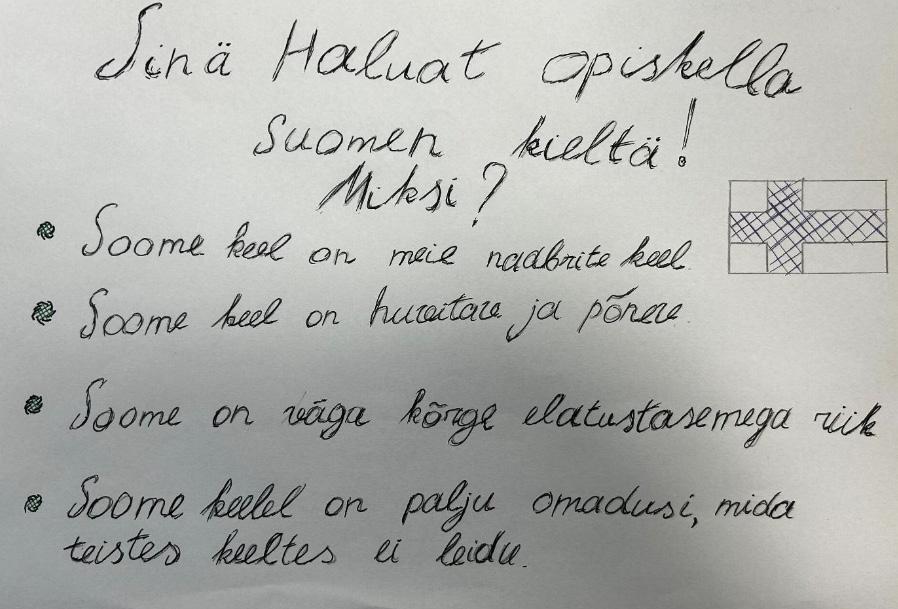 Sinä Haluat opiskella
suomen kieltä!
Miksi?
Soome keel on meie naabrite keel.
Soome keel on huvitav ja põnev.
Soome on väga kõrge elatustasemega riik
Soome keelel on palju omadusi, mida
teistes keeltes ei leidu.